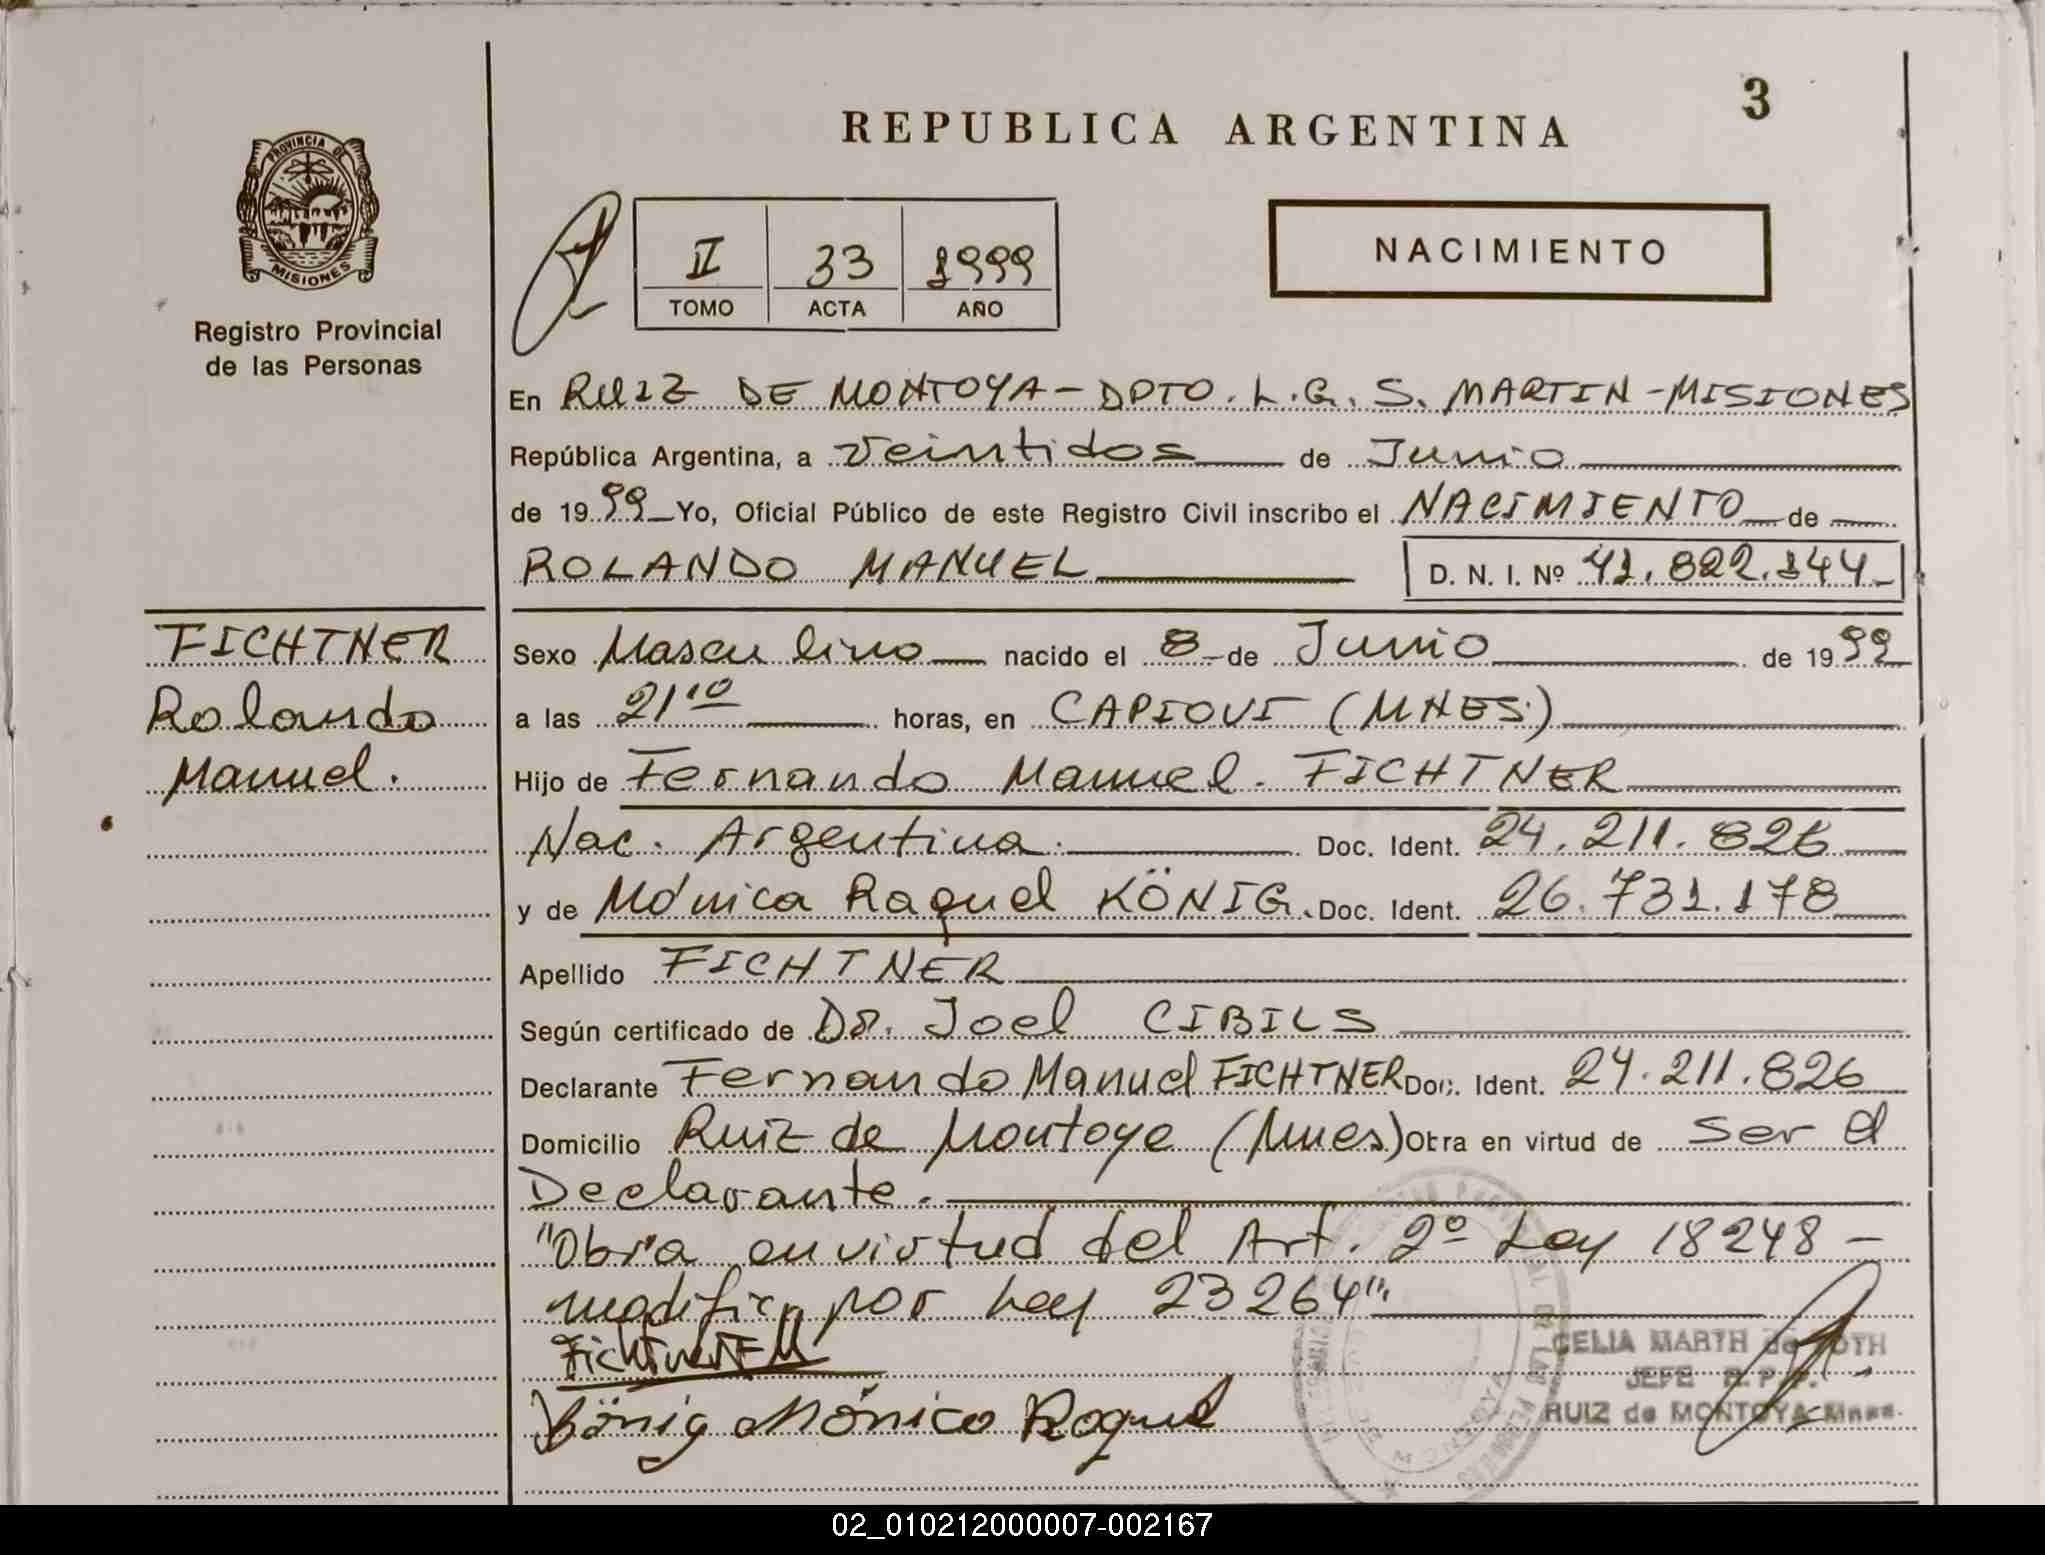 3
REPUBLICA ARGENTINA
PROVINCIA DE
MISIONES
Registro Provincial
de las Personas
II 33 1999
TOMO ACTA AÑO
NACIMIENTO
En RUIZ DE MONTOYA - DPTO. L.G.S. MARTIN - MISIONES
República Argentina, a veintidos de Junio
de 1999 Yo, Oficial Público de este Registro Civil inscribo el NACIMIENTO de
ROLANDO MANUEL D. N. I. Nº 41.822.144
FICHTNER
Rolando
Manuel.
Sexo Masculino nacido el 8 de Junio de 1999
a las 21'10 horas, en CAPIOVI (MNES)
Hijo de Fernando Manuel. FICHTNER
Nac. Argentina. Doc. Ident. 24.211.826
y de Mónica Raquel KÖNIG. Doc. Ident. 26.731.178
Apellido FICHTNER
Según certificado de Dr. Joel CIBILS
Declarante Fernando Manuel FICHTNER Doc. Ident. 24.211.826
Domicilio Ruiz de Montoya (Mnes) Obra en virtud de ser el
Declarante.
"Obra en virtud del Art. 2º Ley 18248 -
modific. por Ley 23264".
Fichtner F M
König Mónica Raquel
CELIA MARTH de ROTH
JEFE R. P. P.
RUIZ de MONTOYA Mnes.
02_010212000007-002167